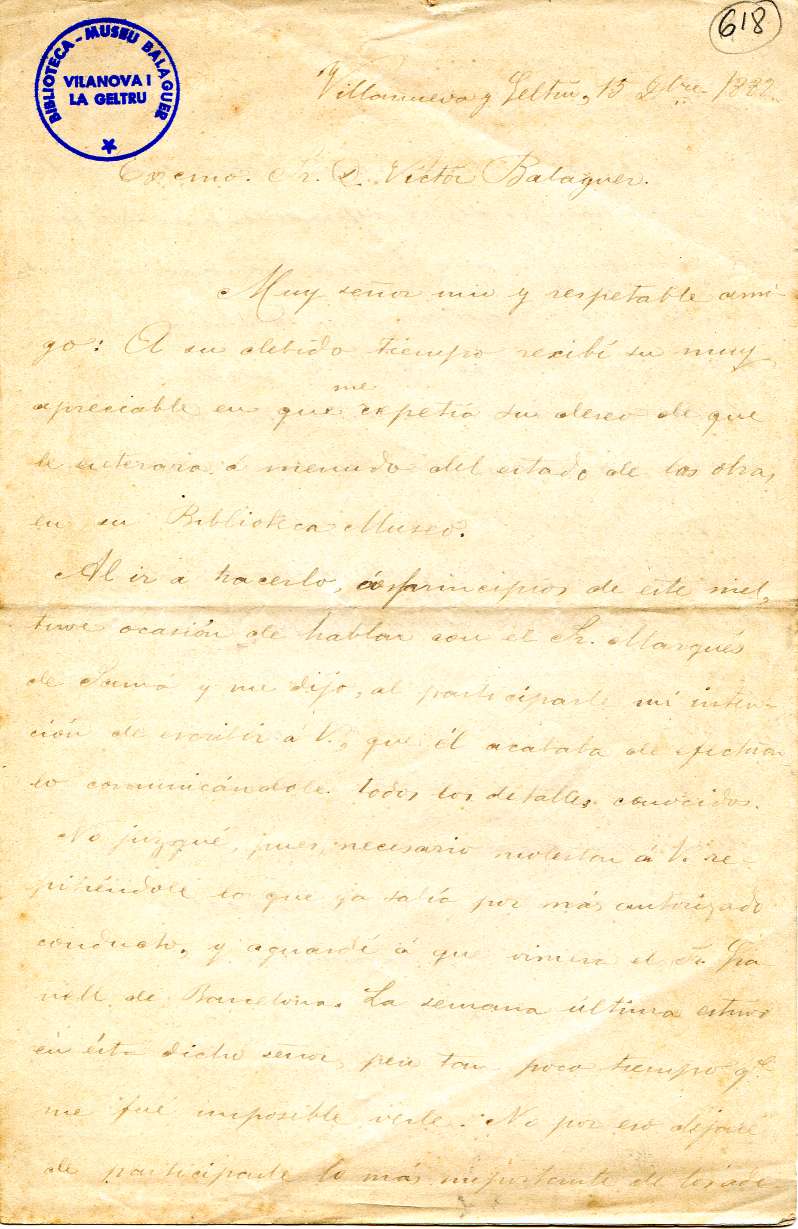 618
BIBLIOTECA - MUSEU BALAGUER
VILANOVA I
LA GELTRU
Villanueva y Geltrú, 15 Dbre 1882.
Excmo. Sr. D. Victor Balaguer.
Muy señor mio y respetable ami-
go: A su debido tiempo recibí su muy
apreciable en que me repetía su deseo de que
le enterara á menudo del estado de las obras
en su Biblioteca Museo.
Al ir a hacerlo, á principios de este mes,
tuve ocasión de hablar con el Sr. Marqués
de Samá y me dijo, al participarle mi inten-
ción de escribir á V., que él acababa de efectuar-
lo comunicándole todos los detalles conocidos.
No juzgué, pues, necesario molestar á V. re-
pitiéndole lo que ya sabía por más autorizado
conducto, y aguardé á que viniera el Sr. Gra-
nell de Barcelona. La semana última estuvo
en ésta dicho señor, pero tan poco tiempo qe.
me fué imposible verle. No por eso dejaré
de participarle lo más importante de los ade-